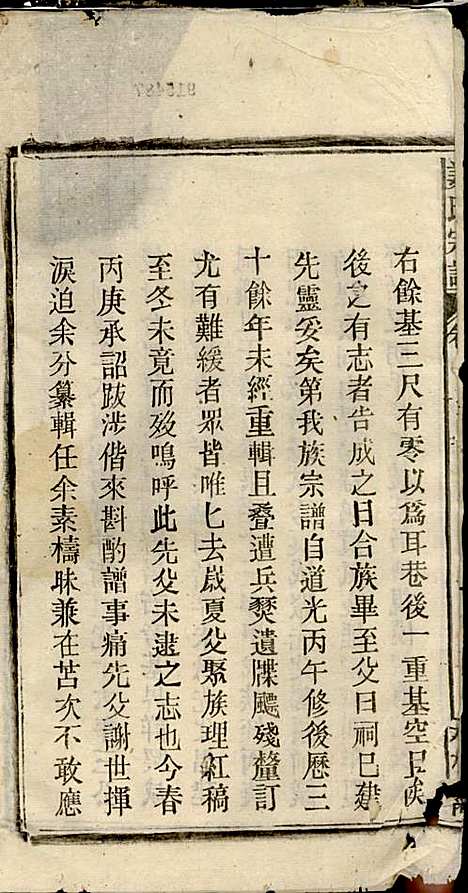 右餘基三尺有零以爲耳巷後一重基空曰俟
後之有志者告成之日合族畢至父曰祠已建
先靈妥矣第我族宗譜自道光丙午修後歷三
十餘年未經重輯且叠遭兵燹遺牒飄殘釐訂
尤有難緩者眾皆唯匕去歲夏父聚族理紅稿
至冬未竟而歿嗚呼此先父未逮之志也今春
丙庚承詔跋涉偕來斟酌譜事痛先父謝世揮
淚迫余分纂輯任余素檮昧兼在苫次不敢應
氏宗譜
915487